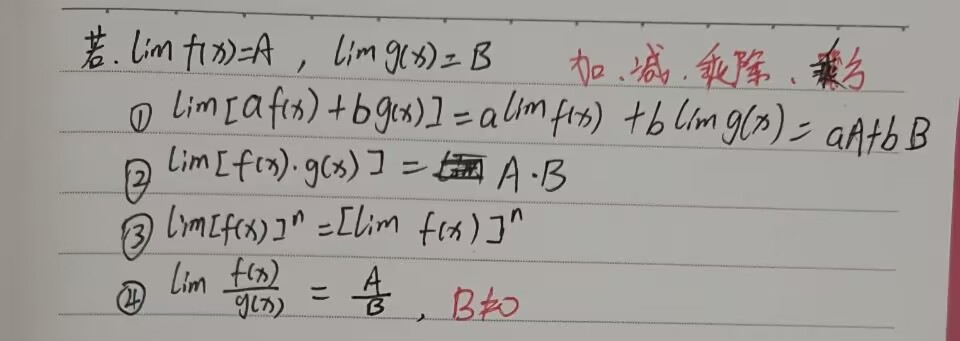 若. lim f(x)=A , lim g(x)=B 加.减.乘除.
① lim[af(x)+bg(x)]=a lim f(x)+b lim g(x)=aA+bB
② lim[f(x)·g(x)]= A·B
③ lim[f(x)]ⁿ=[lim f(x)]ⁿ
④ lim f(x)/g(x) = A/B , B≠0